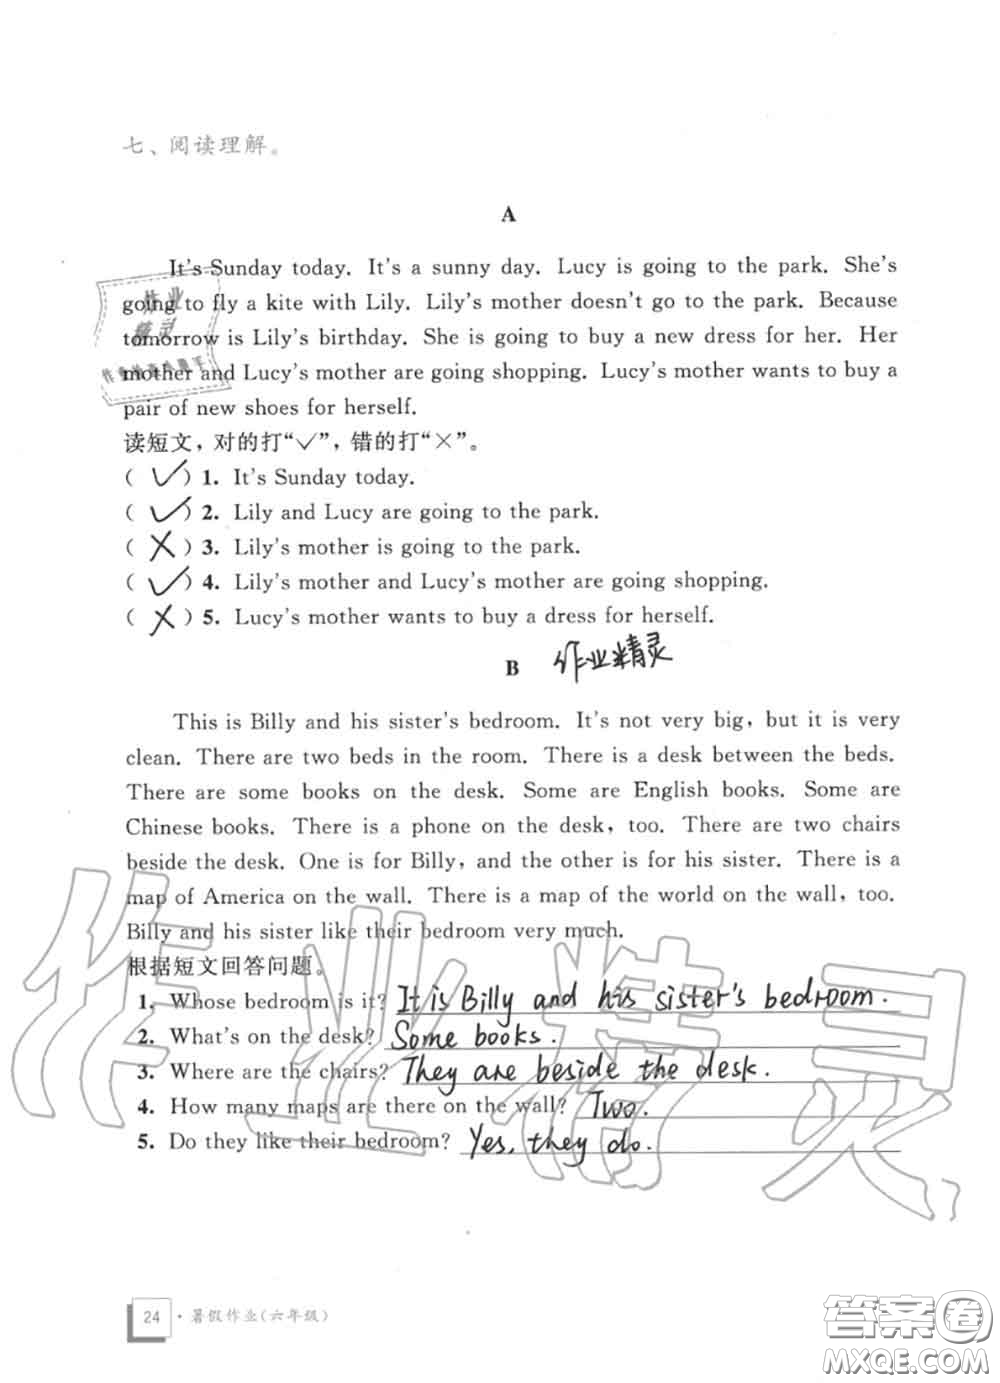 七、阅读理解。
A
It's Sunday today. It's a sunny day. Lucy is going to the park. She's
going to fly a kite with Lily. Lily's mother doesn't go to the park. Because
tomorrow is Lily's birthday. She is going to buy a new dress for her. Her
mother and Lucy's mother are going shopping. Lucy's mother wants to buy a
pair of new shoes for herself.
读短文，对的打“✓”，错的打“×”。
( ✓ ) 1. It's Sunday today.
( ✓ ) 2. Lily and Lucy are going to the park.
( × ) 3. Lily's mother is going to the park.
( ✓ ) 4. Lily's mother and Lucy's mother are going shopping.
( × ) 5. Lucy's mother wants to buy a dress for herself.
B 作业精灵
This is Billy and his sister's bedroom. It's not very big, but it is very
clean. There are two beds in the room. There is a desk between the beds.
There are some books on the desk. Some are English books. Some are
Chinese books. There is a phone on the desk, too. There are two chairs
beside the desk. One is for Billy, and the other is for his sister. There is a
map of America on the wall. There is a map of the world on the wall, too.
Billy and his sister like their bedroom very much.
根据短文回答问题。
1. Whose bedroom is it? It is Billy and his sister's bedroom.
2. What's on the desk? Some books.
3. Where are the chairs? They are beside the desk.
4. How many maps are there on the wall? Two.
5. Do they like their bedroom? Yes, they do.
作业精灵
24 · 暑假作业(六年级)
答案圈
MXQE.COM